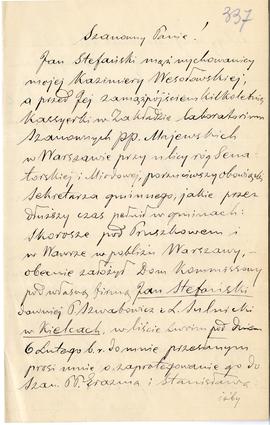 337
Szanowny Panie!
Jan Stefański mąż wychowanicy
mojej Kazimiery Wesołowskiej,
a przed Jej zamążpójściem kilkoletniej
Kassyerki w Zakładzie laboratorium
Szanownych pp. Majewskich
w Warszawie przy ulicy róg Sena-
torskiej i Miodowej, porzuciwszy obowiązki
Sekretarza gminnego, jakie przez
dłuższy czas pełnił w gminach:
Skorosze pod Pruszkowem i
w Wawrze w pobliżu Warszawy, –
obecnie założył Dom Kommissowy
pod własną firmą Jan Stefański
dawniej P. Szwabowicz i L.
w Kielcach, w liście swoim pod dniem
6 Lutego b.r. do mnie przesłanym
prosi mnie o zaprotegowanie go do
Szan. PP. Erazma i Stanisława
żeby